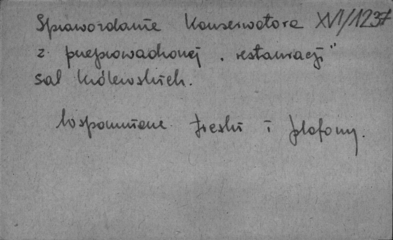 Sprawozdanie Konserwatora XVI/1237
z przeprowadzonej "restauracji"
sal królewskich.
Wspomniane freski i plafony.